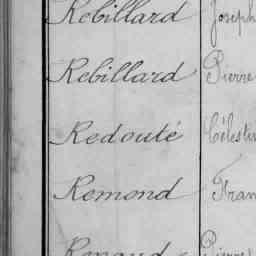 Rebillard Joseph
Rebillard Pierre
Redouté Célestin
Remond Fran
Renaud Pierre